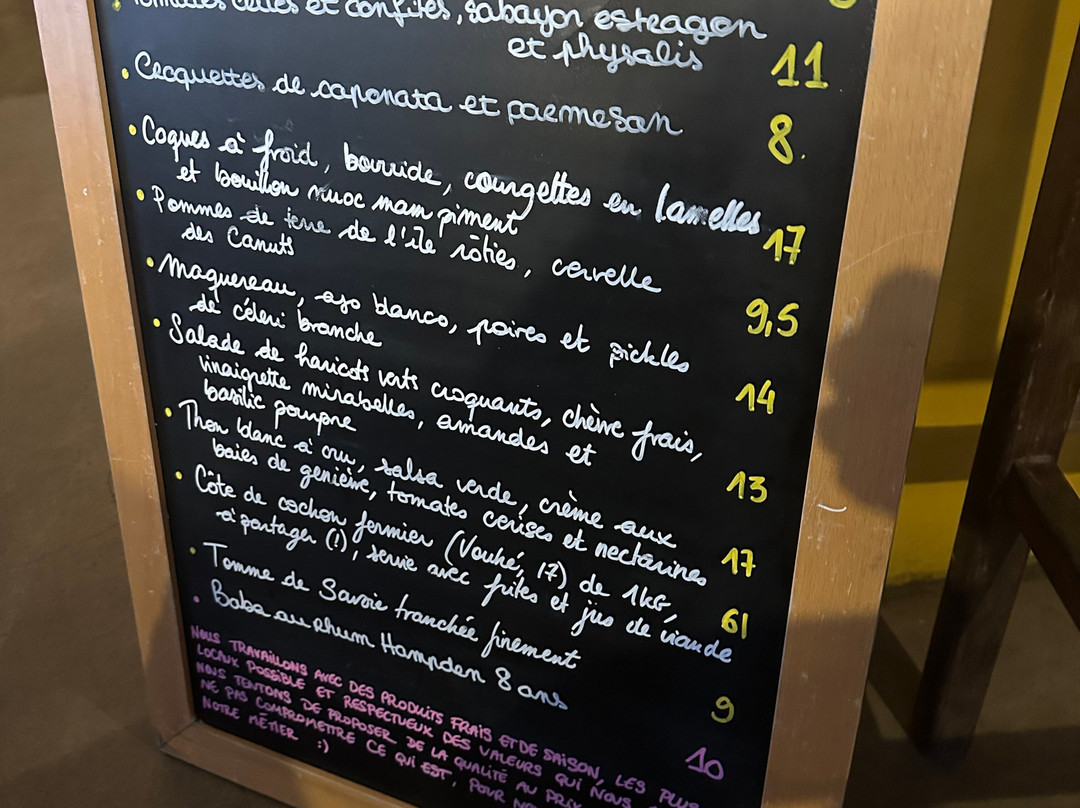 Tomates cerises et confites, sabayon estragon
et physalis 11
Croquettes de caponata et parmesan 8.
Coques à froid, bourride, courgettes en lamelles
et bouillon nuoc mam piment 17
Pommes de terre de l'île rôties, cervelle
des Canuts 9,5
Maquereau, ajo blanco, poires et pickles
de céleri branche 14
Salade de haricots verts croquants, chèvre frais,
vinaigrette mirabelles, amandes et
basilic pourpre 13
Thon blanc à cru, salsa verde, crème aux
baies de genièvre, tomates cerises et nectarines 17
Côte de cochon fermier (Vouhé, 17) de 1kg,
à partager (!), servie avec frites et jus de viande 61
Tomme de Savoie tranchée finement 9
Baba au Rhum Hampden 8 ans 10
NOUS TRAVAILLONS AVEC DES PRODUITS FRAIS ET DE SAISON, LES PLUS
LOCAUX POSSIBLE ET RESPECTUEUX DES VALEURS QUI NOUS
NOUS TENTONS DE PROPOSER DE LA QUALITÉ AU PRIX
NE PAS COMPROMETTRE CE QUI EST, POUR
NOTRE MÉTIER :)